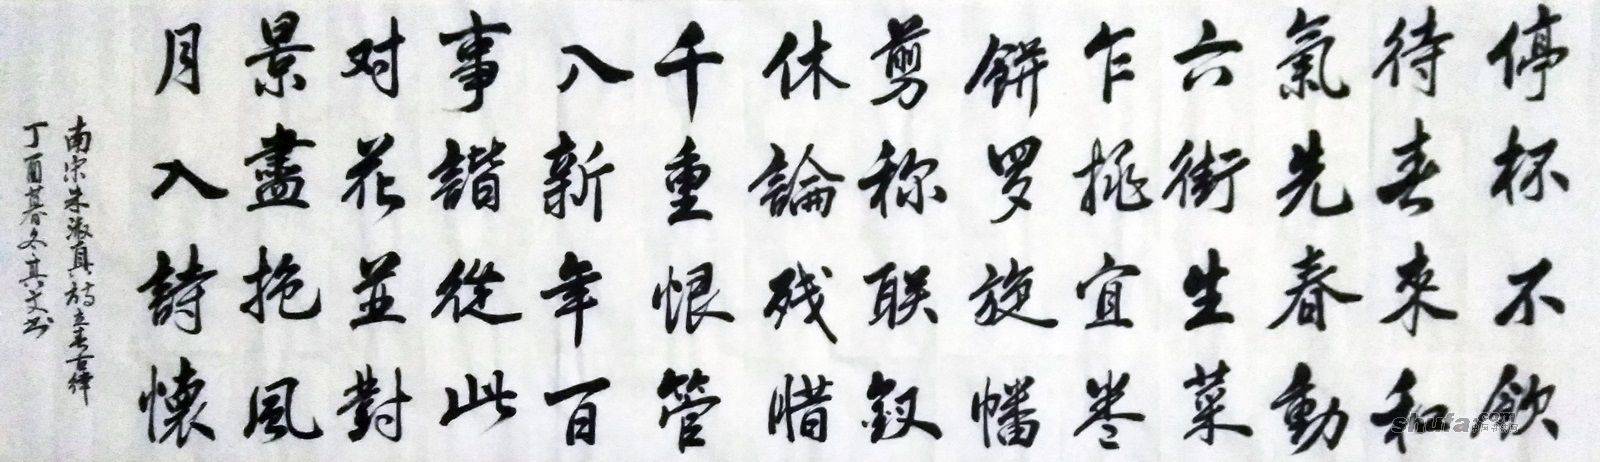 停杯不飲
待春來和
氣先春動
六街生菜
乍挑宜卷
餅罗旋幡
剪称联釵
休論残惜
千重恨管
八新年百
事諧從此
对花並對
景盡抱風
月入詩懷
南宋朱淑真詩立春古律
丁酉暮冬其文书
shufa